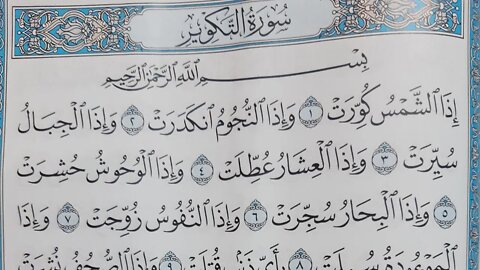 سُورَةُ التَّكْوِيرِ
بِسْمِ ٱللَّهِ ٱلرَّحْمَٰنِ ٱلرَّحِيمِ
إِذَا ٱلشَّمْسُ كُوِّرَتْ ١ وَإِذَا ٱلنُّجُومُ ٱنكَدَرَتْ ٢ وَإِذَا ٱلْجِبَالُ
سُيِّرَتْ ٣ وَإِذَا ٱلْعِشَارُ عُطِّلَتْ ٤ وَإِذَا ٱلْوُحُوشُ حُشِرَتْ
٥ وَإِذَا ٱلْبِحَارُ سُجِّرَتْ ٦ وَإِذَا ٱلنُّفُوسُ زُوِّجَتْ ٧ وَإِذَا
ٱلْمَوْءُۥدَةُ سُئِلَتْ ٨ بِأَيِّ ذَنۢبٍ قُتِلَتْ ٩ وَإِذَا ٱلصُّحُفُ نُشِرَتْ